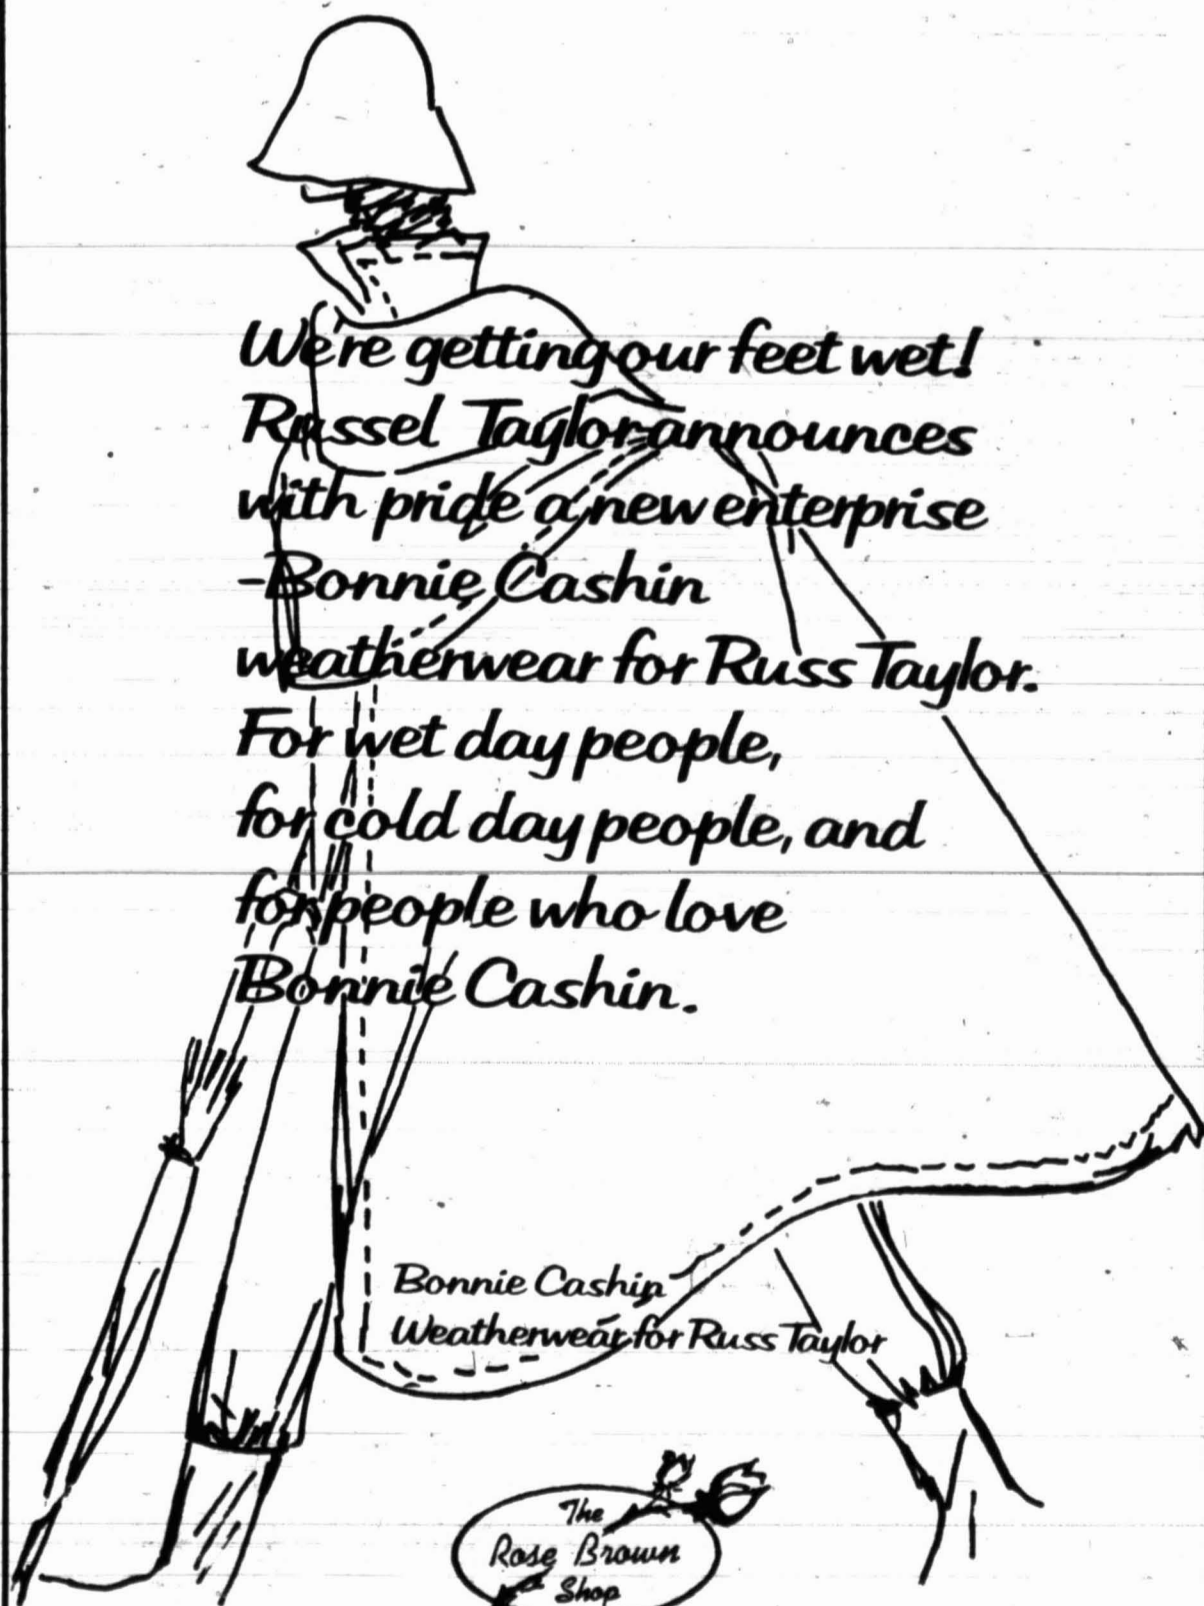 We're getting our feet wet!
Russel Taylor announces
with pride a new enterprise
-Bonnie Cashin
weatherwear for Russ Taylor.
For wet day people,
for cold day people, and
for people who love
Bonnie Cashin.
Bonnie Cashin
Weatherwear for Russ Taylor
The
Rose Brown
Shop